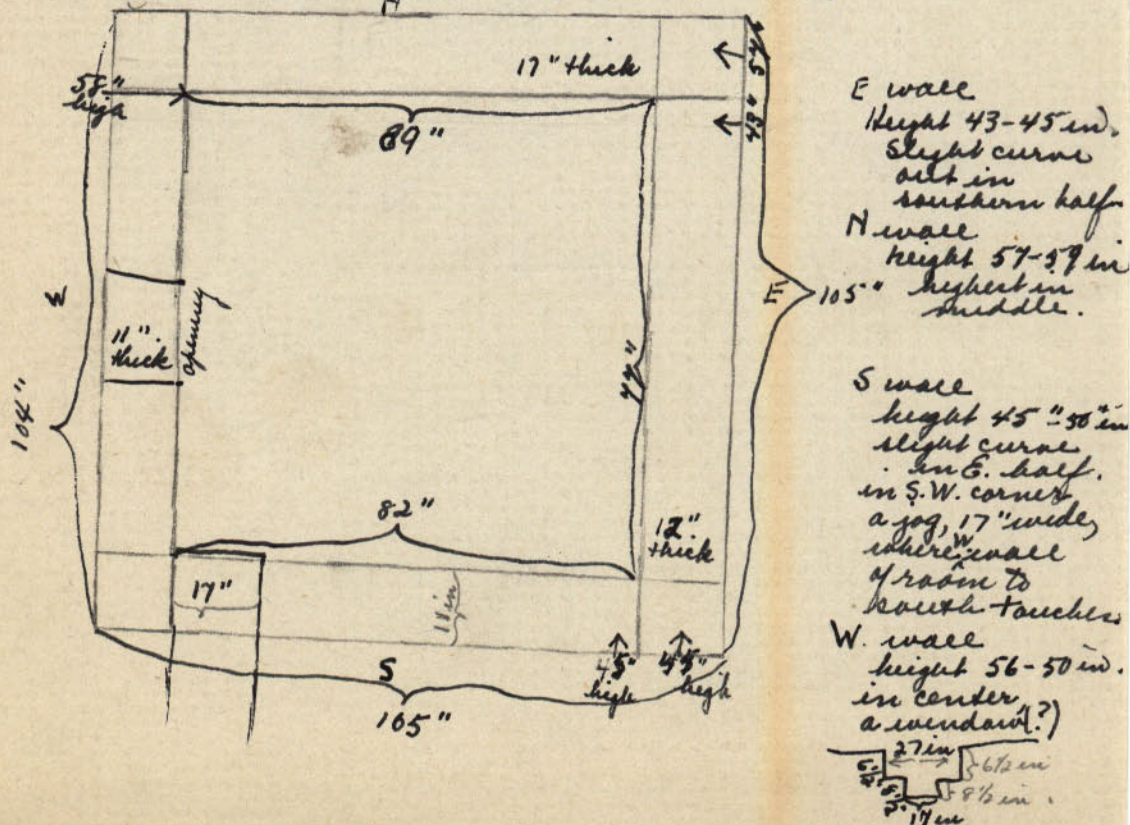 N
17" thick
54"
58"
high
89"
43"
E
105"
11"
thick
opening
104"
77"
82"
12"
thick
17"
11 in
45"
high
45"
high
S
105"
E wall
Height 43-45 in.
Slight curve
out in
southern half
N wall
height 57-59 in
highest in
middle.
S wall
height 45"-50" in
slight curve
in E. half.
in S.W. corner
a jog, 17" wide,
where W wall
of room to
south touches
W. wall
height 56-50 in.
in center
a window(?)
27 in
6 1/2
6 1/2 in
8 1/2
8 1/2 in.
17 in